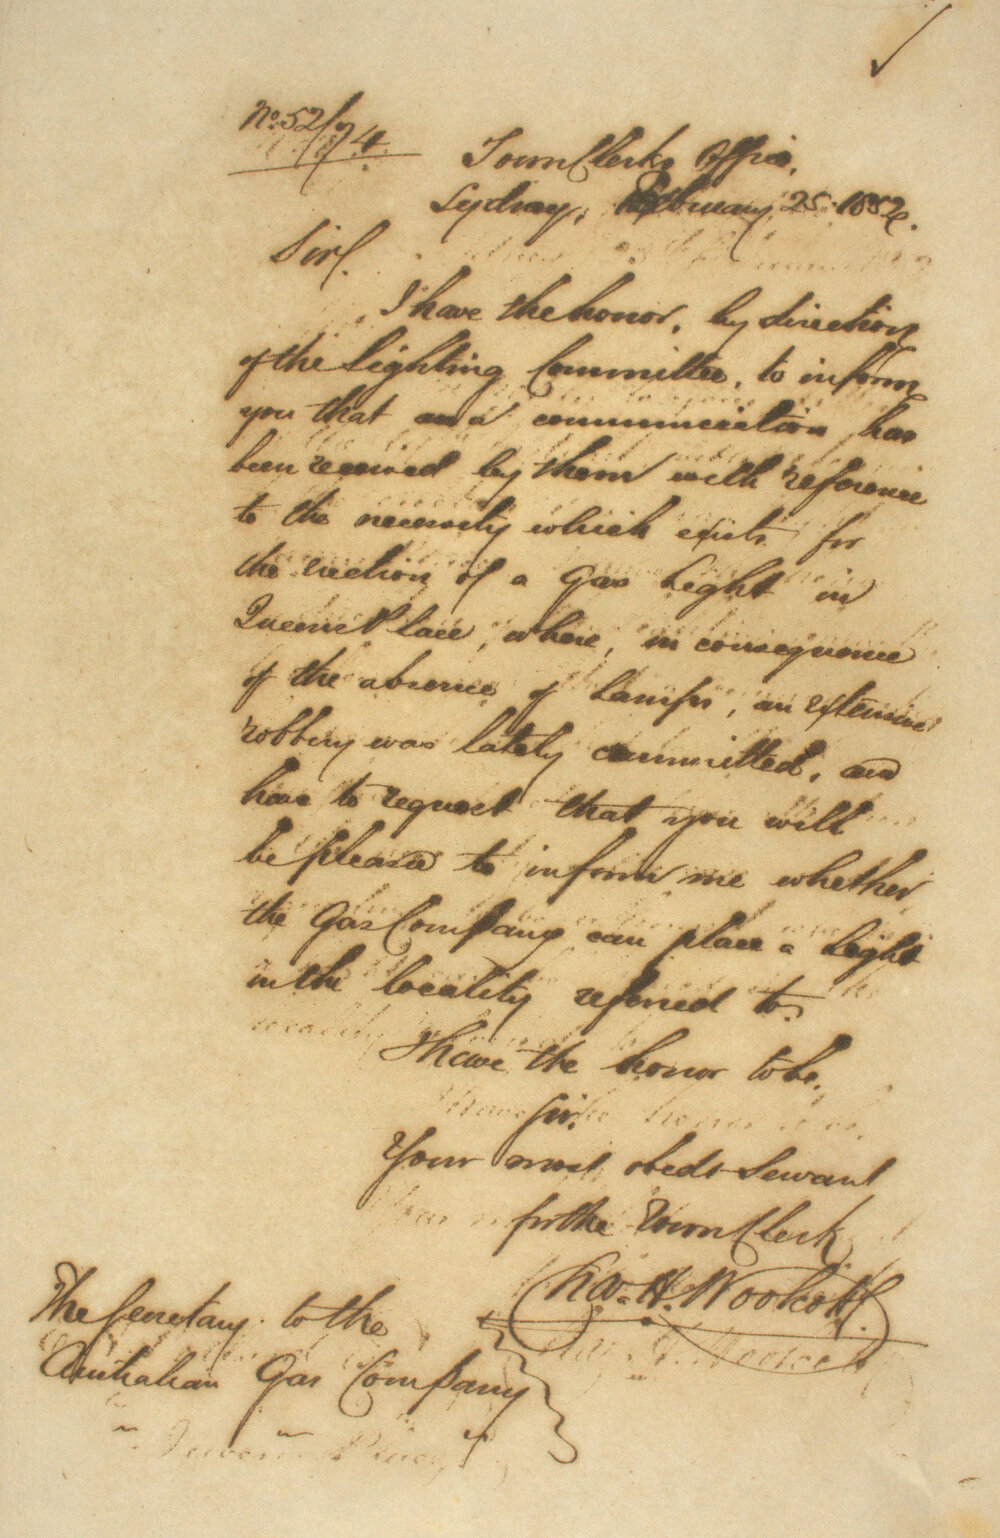 No. 52/74
Town Clerks Office,
Sydney, February 25. 1852.
Sir/.
I have the honor, by direction
of the Lighting Committee, to inform
you that a communication has
been received by them with reference
to the necessity which exists for
the erection of a Gas Light in
Queens Place, where, in consequence
of the absence of Lamps, an extensive
robbery was lately committed, and
have to request that you will
be pleased to inform me whether
the Gas Company can place a Light
in the locality referred to.
I have the honor to be,
Sir,
Your most obedt Servant
for the Town Clerk
H. Woolcott
The Secretary to the
Australian Gas Company